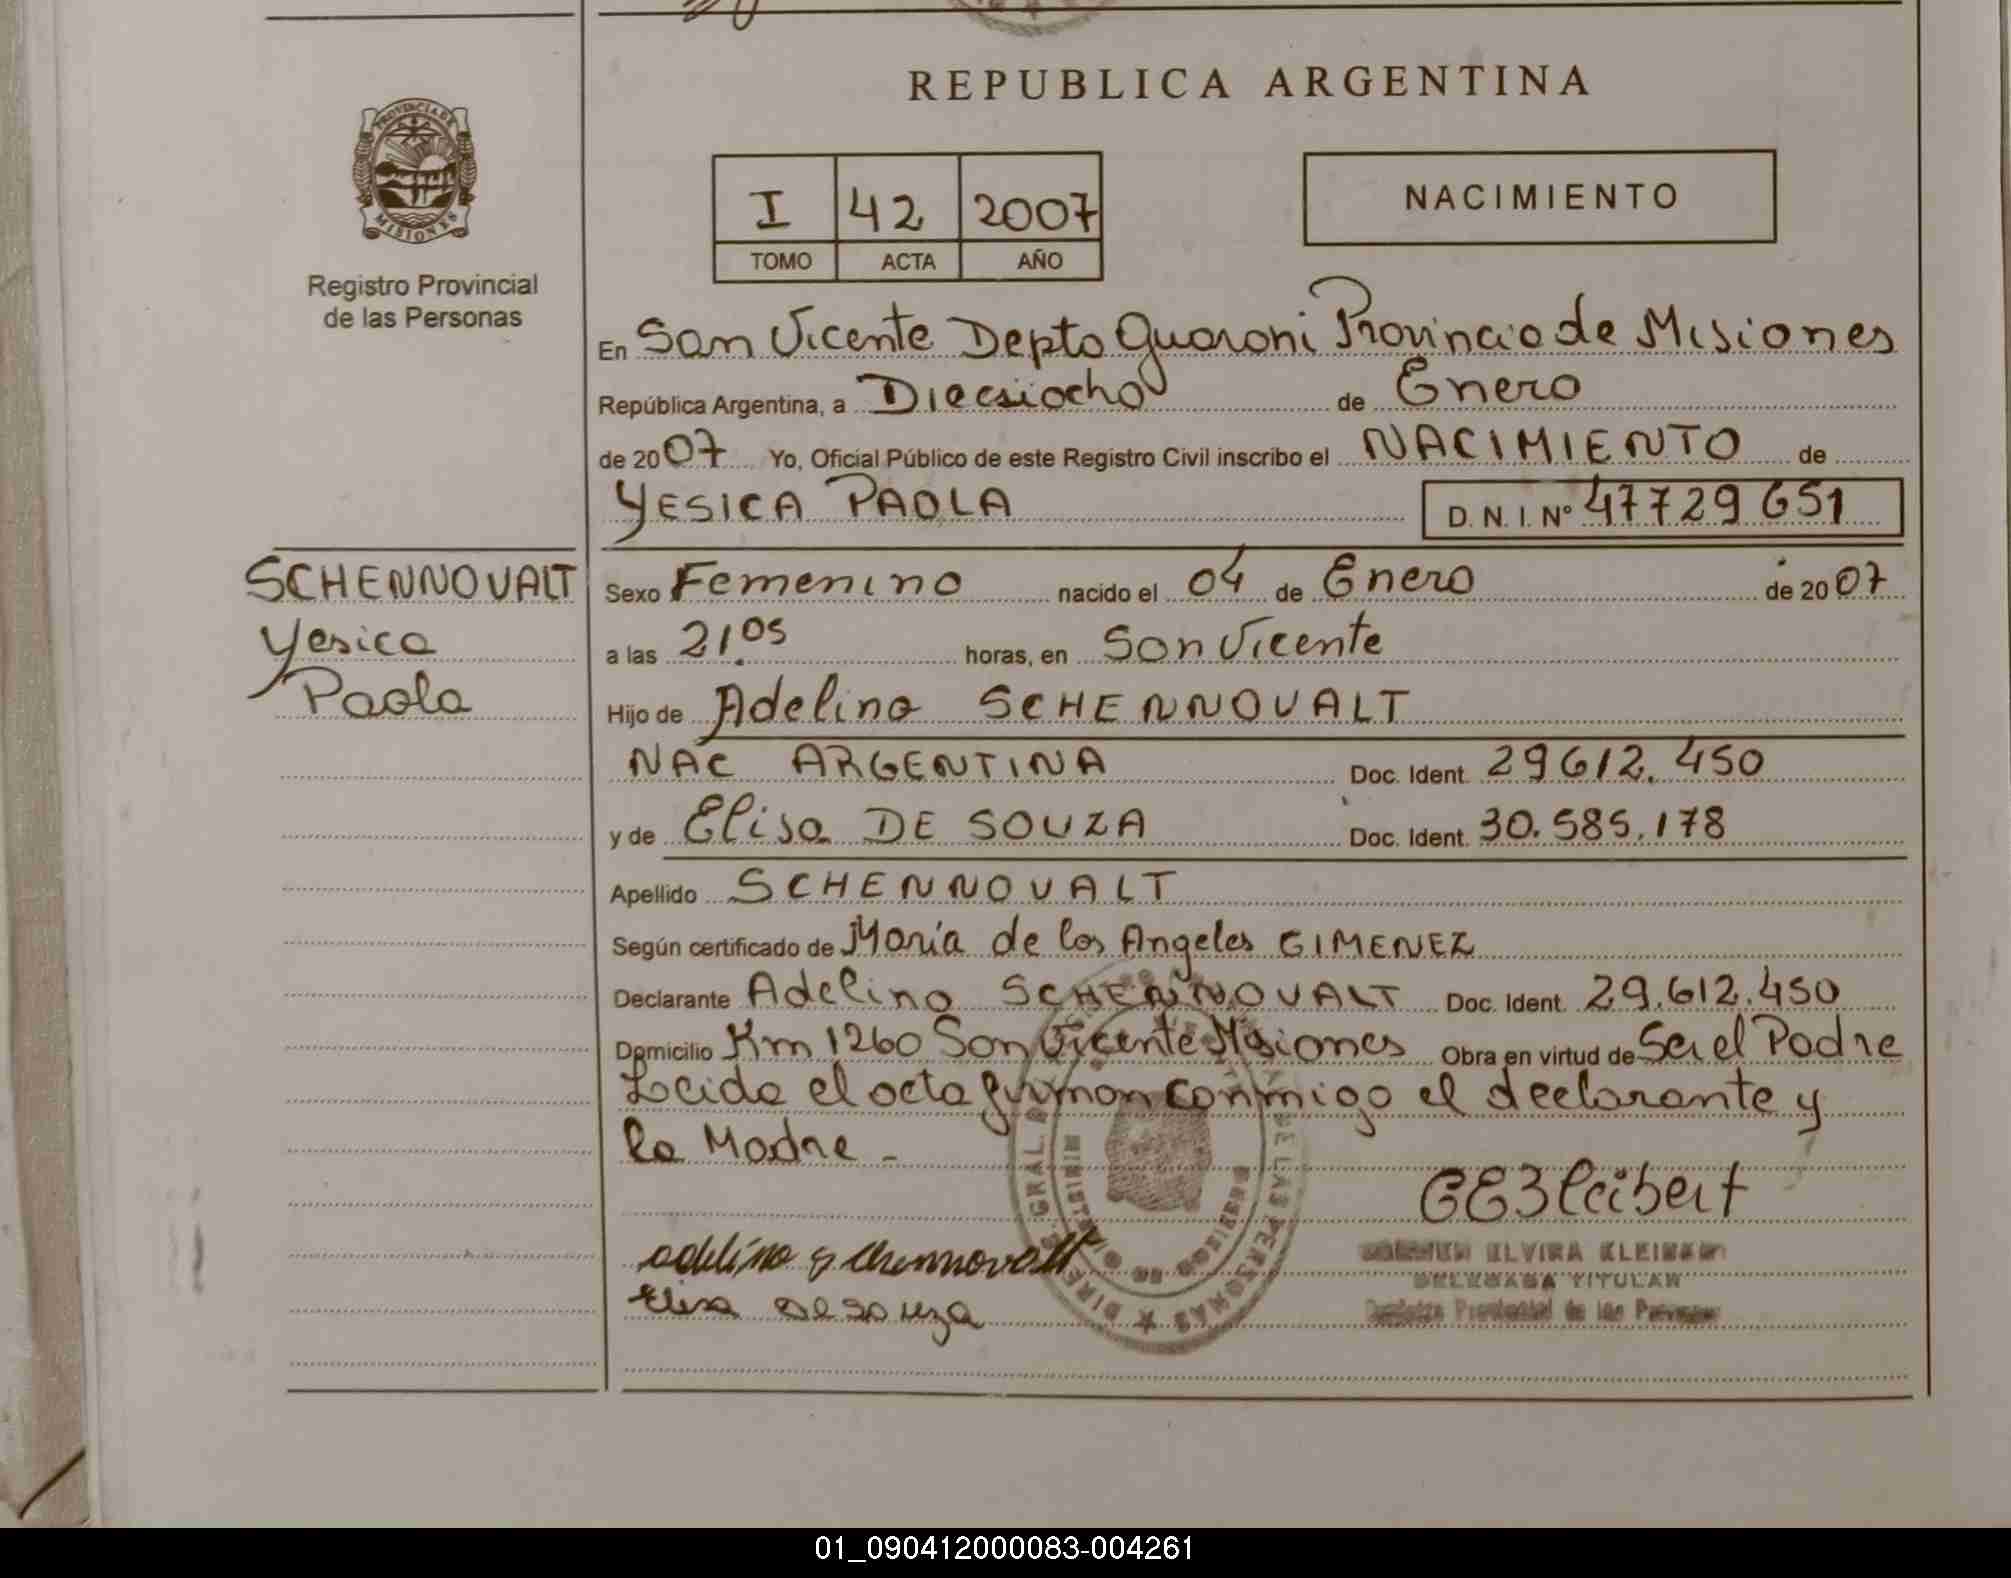 REPUBLICA ARGENTINA
PROVINCIA DE
MISIONES
Registro Provincial
de las Personas
I 42 2007
TOMO ACTA AÑO
NACIMIENTO
En San Vicente Depto Guaroni Provincia de Misiones
República Argentina, a Diecsiocho de Enero
de 2007 Yo, Oficial Público de este Registro Civil inscribo el NACIMIENTO de
YESICA PAOLA D. N. I. Nº 47729651
SCHENNOVALT
Yesica
Paola
Sexo Femenino nacido el 04 de Enero de 2007
a las 21.05 horas, en San Vicente
Hijo de Adelino SCHENNOVALT
NAC ARGENTINA Doc. Ident. 29612.450
y de Elisa DE SOUZA Doc. Ident. 30.585.178
Apellido SCHENNOVALT
Según certificado de María de los Angeles GIMENEZ
Declarante Adelino SCHENNOVALT Doc. Ident. 29.612.450
Domicilio Km 1260 San Vicente Misiones Obra en virtud de Ser el Padre
Leida el acta firman conmigo el declarante y
la Madre -
GE3leibert
adelino s chennovalt
Elisa de souza
ELVIRA
TITULAR
Provincial de las
DE LAS PERSONAS ★ DIRE GRAL.
01_090412000083-004261